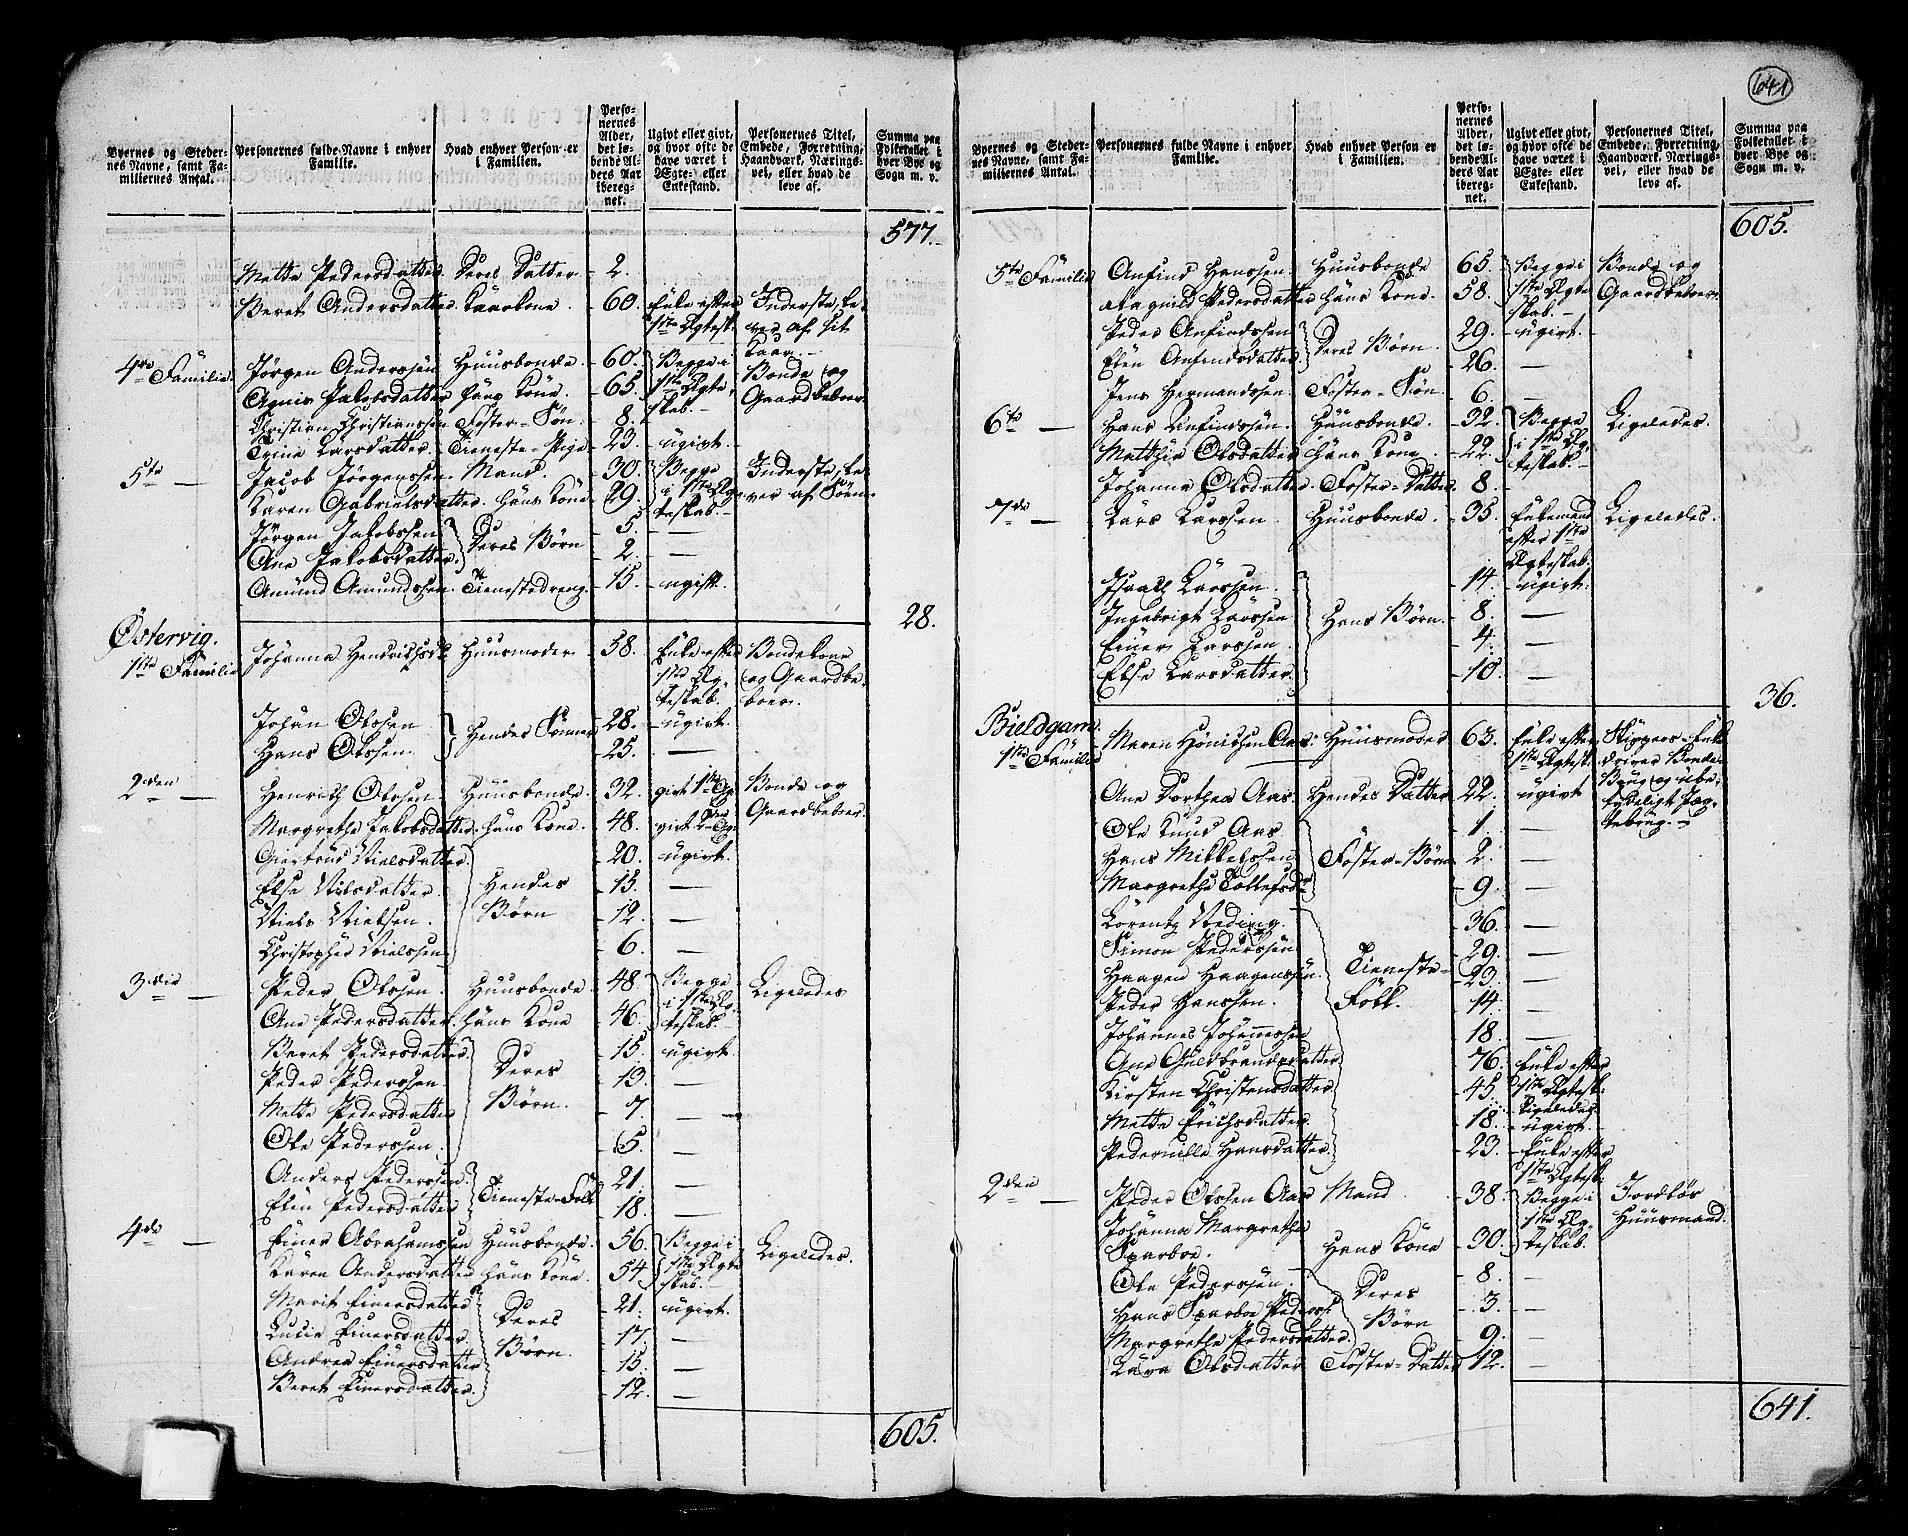 641
Byernes og Stedernes Navne, samt Familiernes Antal.
Personernes fulde Navne i enhver Familie.
Hvad enhver Person er i Familien.
Personernes Alder, det løbende Alders Aar iberegnet.
Ugivt eller givt, og hvor ofte de have været i Ægte- eller Enkestand.
Personernes Titel, Embede, Forretning, Haandværk, Næringsvei, eller hvad de leve af.
Summa paa Folketallet i hver Bye og Sogn m. v.
577.
Mette Pedersdatter Deres Datter 2.
Beret Andersdatter Kaarkone 60. Enke efter 1ste Ægtesk. Inderste, lever af sit Kaar.
4re Familie. Jørgen Anderssøn Huusbonde 60. Begge i 1ste Ægteskab. Bonde og Gaardbeboer
Agnis Jakobsdatter Hans Kone. 65.
Christian Christianssen Foster-Søn. 8.
Trine Larsdatter Tieneste-Pige 23. ugivt.
5te — Jacob Jørgenssen Mand. 30. Begge i 1ste Ægteskab. Inderste, lever af Søen
Karen Gabrielsdatter. Hans Kone 29.
Jørgen Jakobssen Deres Børn 5 —
Ane Jakobsdatter. 2. —
Amund Amundssen. Tienestedreng 15. ugift.
28.
Østervig.
1ste Familie Johanna Hendrichsdr Huusmoder 58. Enke efter 1ste Ægteskab. Bondekone og Gaardbeboer.
Johan Olssen Hendes Sønner 28. ugivt.
Hans Olssen. 25. —
2den — Henrich Olssen Huusbonde. 32. givt 1ste Æg. Bonde og Gaardbeboer.
Margrethe Jakobsdatter. Hans Kone. 48. givt 2den Æg.
Giertrud Nielsdatter. Hendes Børn 20. ugivt.
Else Nilsdatter. 15. —
Niels Nielsen. 12. —
Christopher Nielssen 6. —
3die — Peder Olssen. Huusbonde 48. Begge i 1ste Ægteskab. Ligeledes
Ane Pedersdatter. Hans Kone 46.
Beret Pedersdatter. Deres Børn. 15. ugivt.
Peder Pederssen 13. —
Mette Pedersdatter 7 —
Ole Pederssen. 5. —
Anders Pederssen. Tieneste-Folk 21. —
Elen Pedersdatter 18. —
4de — Einer Abrahamssen Huusbonde. 56. Begge i 1ste Ægteskab. Ligeledes.
Karen Andersdatter Hans Kone. 54.
Marit Einersdatter Deres Børn. 21. ugivt.
Lucie Einersdatter. 17. —
Andrea Einersdatter 15. —
Beret Einersdatter. 12. —
605.
Byernes og Stedernes Navne, samt Familiernes Antal.
Personernes fulde Navne i enhver Familie.
Hvad enhver Person er i Familien.
Personernes Alder, det løbende Alders Aar iberegnet.
Ugivt eller givt, og hvor ofte de have været i Ægte- eller Enkestand.
Personernes Titel, Embede, Forretning, Haandværk, Næringsvei, eller hvad de leve af.
Summa paa Folketallet i hver Bye og Sogn m. v.
605.
5te Familie Anfind Hanssen. Huusbonde 65. Begge i 1ste Ægteskab. Bonde og Gaardbeboer
Pedersdatter Hans Kone. 58.
Peder Anfindssen Deres Børn. 29. ugivt.
Elen Anfindsdatter 26. —
Jens Hermandssen. Foster-Søn 6. —
6te — Hans Anfindssen. Huusbonde. 32. Begge i 1ste Ægteskab. Ligeledes.
Matthia Olsdatter Hans Kone. 22.
Johanna Olsdatter. Foster-Datter 8. —
7de — Lars Larssen. Huusbonde. 35. Enkemand efter 1ste Ægteskab. Ligeledes.
Isaak Larssen. Hans Børn. 14. ugivt.
Ingebrigt Larssen 8. —
Einer Larssen. 4. —
Else Larsdatter. 10. —
36.
Bieldgam.
1ste Familie Maren Aas. Huusmoder 63. Enke efter 1ste Ægtesk. Skippers-Enke driver Bonde-Brug og ubetydeligt Jægtebrug.
Ane Dorthea Aas. Hendes Datter 22. ugivt
Ole Knud Aas Foster-Børn 1. —
Hans Mikkelssen 2. —
Margrethe Tollefsdr 9. —
Lorentz Tieneste-Folk. 36. —
Simon Pederssen 29. —
Haagen Haagenssøn. 23. —
Peder Hanssen. 14. —
Johannes Johannessen 18. —
Ane Guldbrandsdatter 76. Enke efter 1ste Ægtesk.
Kirsten Christensdatter 45. Ligeledes
Mette Erichsdatter. 18. ugivt.
Pedernille Hansdatter. 23. Enke efter 1ste Ægtesk.
2den — Peder Olssen Aas Mand. 38. Begge i 1ste Ægteskab. Jordløs Huusmand.
Johanna Margrethe Sparboe. Hans Kone 30.
Ole Pederssen. Deres Børn 8. —
Hans Sparboe Pederss. 3. —
Margrethe Pedersdatter. 9. —
Lava Olsdatter Foster-Datter 12. —
641.